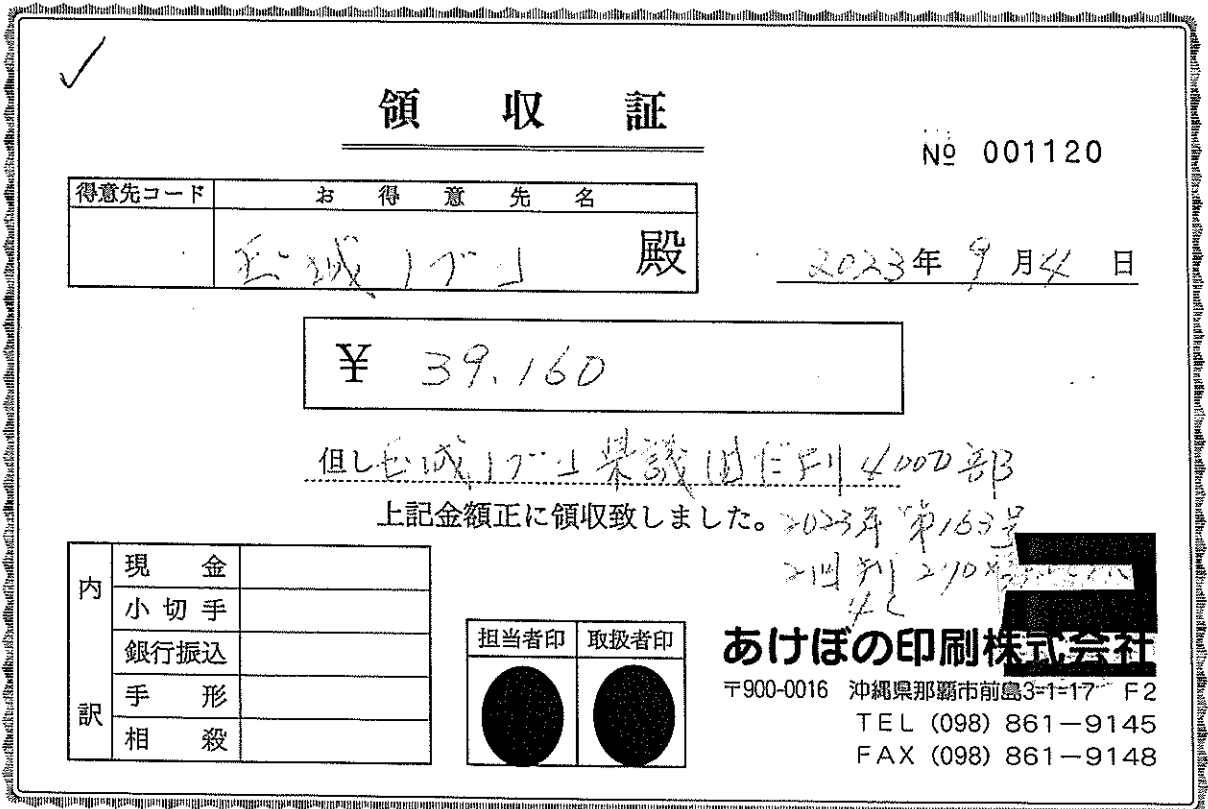 領 収 証
№ 001120
得意先コード お 得 意 先 名
玉城ノブコ 殿
2023年 9月4日
¥ 39.160
但し玉城ノブコ県議 4000部
上記金額正に領収致しました。
2023年 第163号
2回刷
内訳
現 金
小 切 手
銀行振込
手 形
相 殺
担当者印 取扱者印
あけぼの印刷株式会社
〒900-0016 沖縄県那覇市前島3-1-17 F2
TEL (098) 861-9145
FAX (098) 861-9148